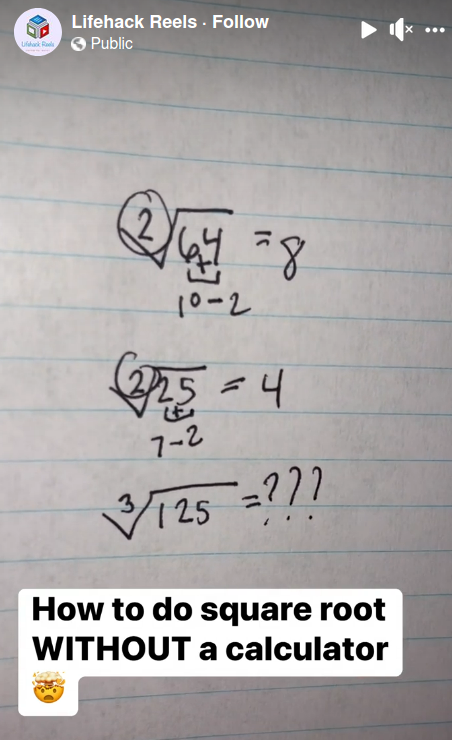 Lifehack Reels · Follow
Public
Lifehack Reels
2√64 = 8
+
10-2
2√25 = 4
+
7-2
3√125 =???
How to do square root
WITHOUT a calculator
🤯